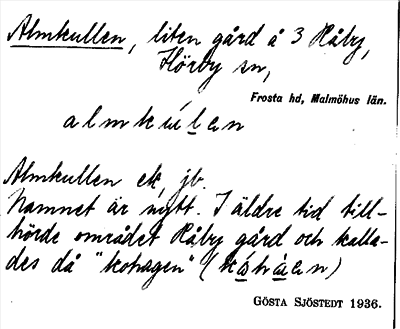 Almkullen, liten gård å 3 Råby,
Hörby sn,
Frosta hd, Malmöhus län.
almkúlen
Almkullen ek, jb.
Namnet är nytt. I äldre tid till-
hörde området Råby gård och kalla-
des då "kohagen" (kåhaen)
GÖSTA SJÖSTEDT 1936.